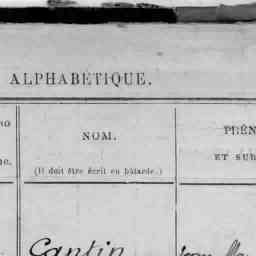 ALPHABÉTIQUE.
NOM.
(Il doit être écrit en bâtarde.)
PRÉN
ET SUR
Cantin